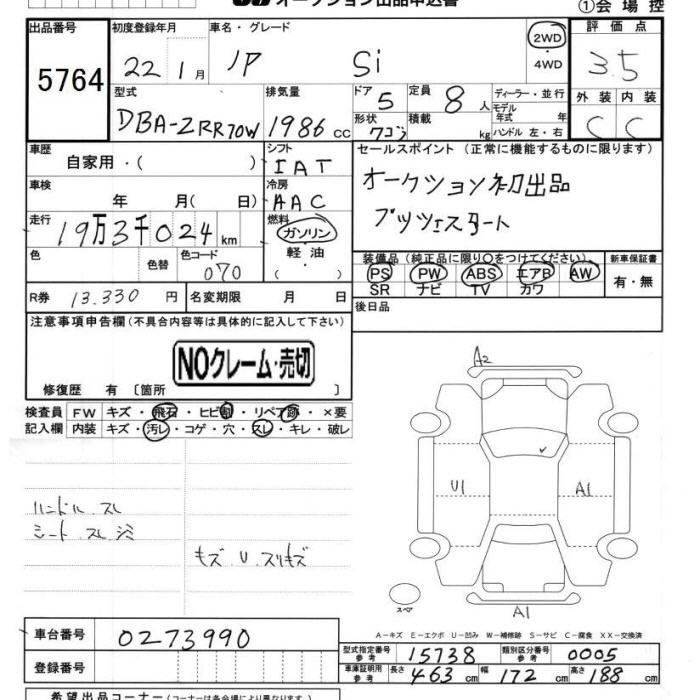 オークション出品申込書
①会場控
出品番号 初度登録年月 車名・グレード 2WD ・ 4WD 評価点
5764 22 1月 ノア Si 3.5
型式 排気量 ドア 5 定員 8人 ディーラー・並行 外装 内装
DBA-ZRR70W 1986cc 形状 ワゴン 積載 kg モデル年式 年 ハンドル 左・右 C C
車歴 シフト セールスポイント (正常に機能するものに限ります)
自家用・( ) IAT
車検 冷房 オークション初出品
年 月( 日) AAC プッシュスタート
走行 燃料
19万3千024km ガソリン・軽油・( )
色 色替 色コード 070
装備品(純正品に限り○をつけてください) 新車保証書
PS PW ABS エアB AW 有・無
SR ナビ TV カワ
R券 13.330円 名変期限 月 日 後日品
注意事項申告欄(不具合内容等は具体的に記入して下さい)
NOクレーム・売切
修復歴 有〔箇所 〕
検査員 FW キズ・飛石・ヒビ割・リペア跡・×要
記入欄 内装 キズ・汚レ・コゲ・穴・スレ・キレ・破レ
A2
U1 A1
ハンドル スレ
シート スレ シミ
キズ.U.スリキズ
スペア
A1
A-キズ E-エクボ U-凹み W-補修跡 S-サビ C-腐食 XX-交換済
車台番号 0273990
型式指定番号 参考 15738 類別区分番号 参考 0005
登録番号
車庫証明用 参考 長さ 463cm 幅 172cm 高さ 188cm
希望出品コーナー(コーナーは各会場により異なります)